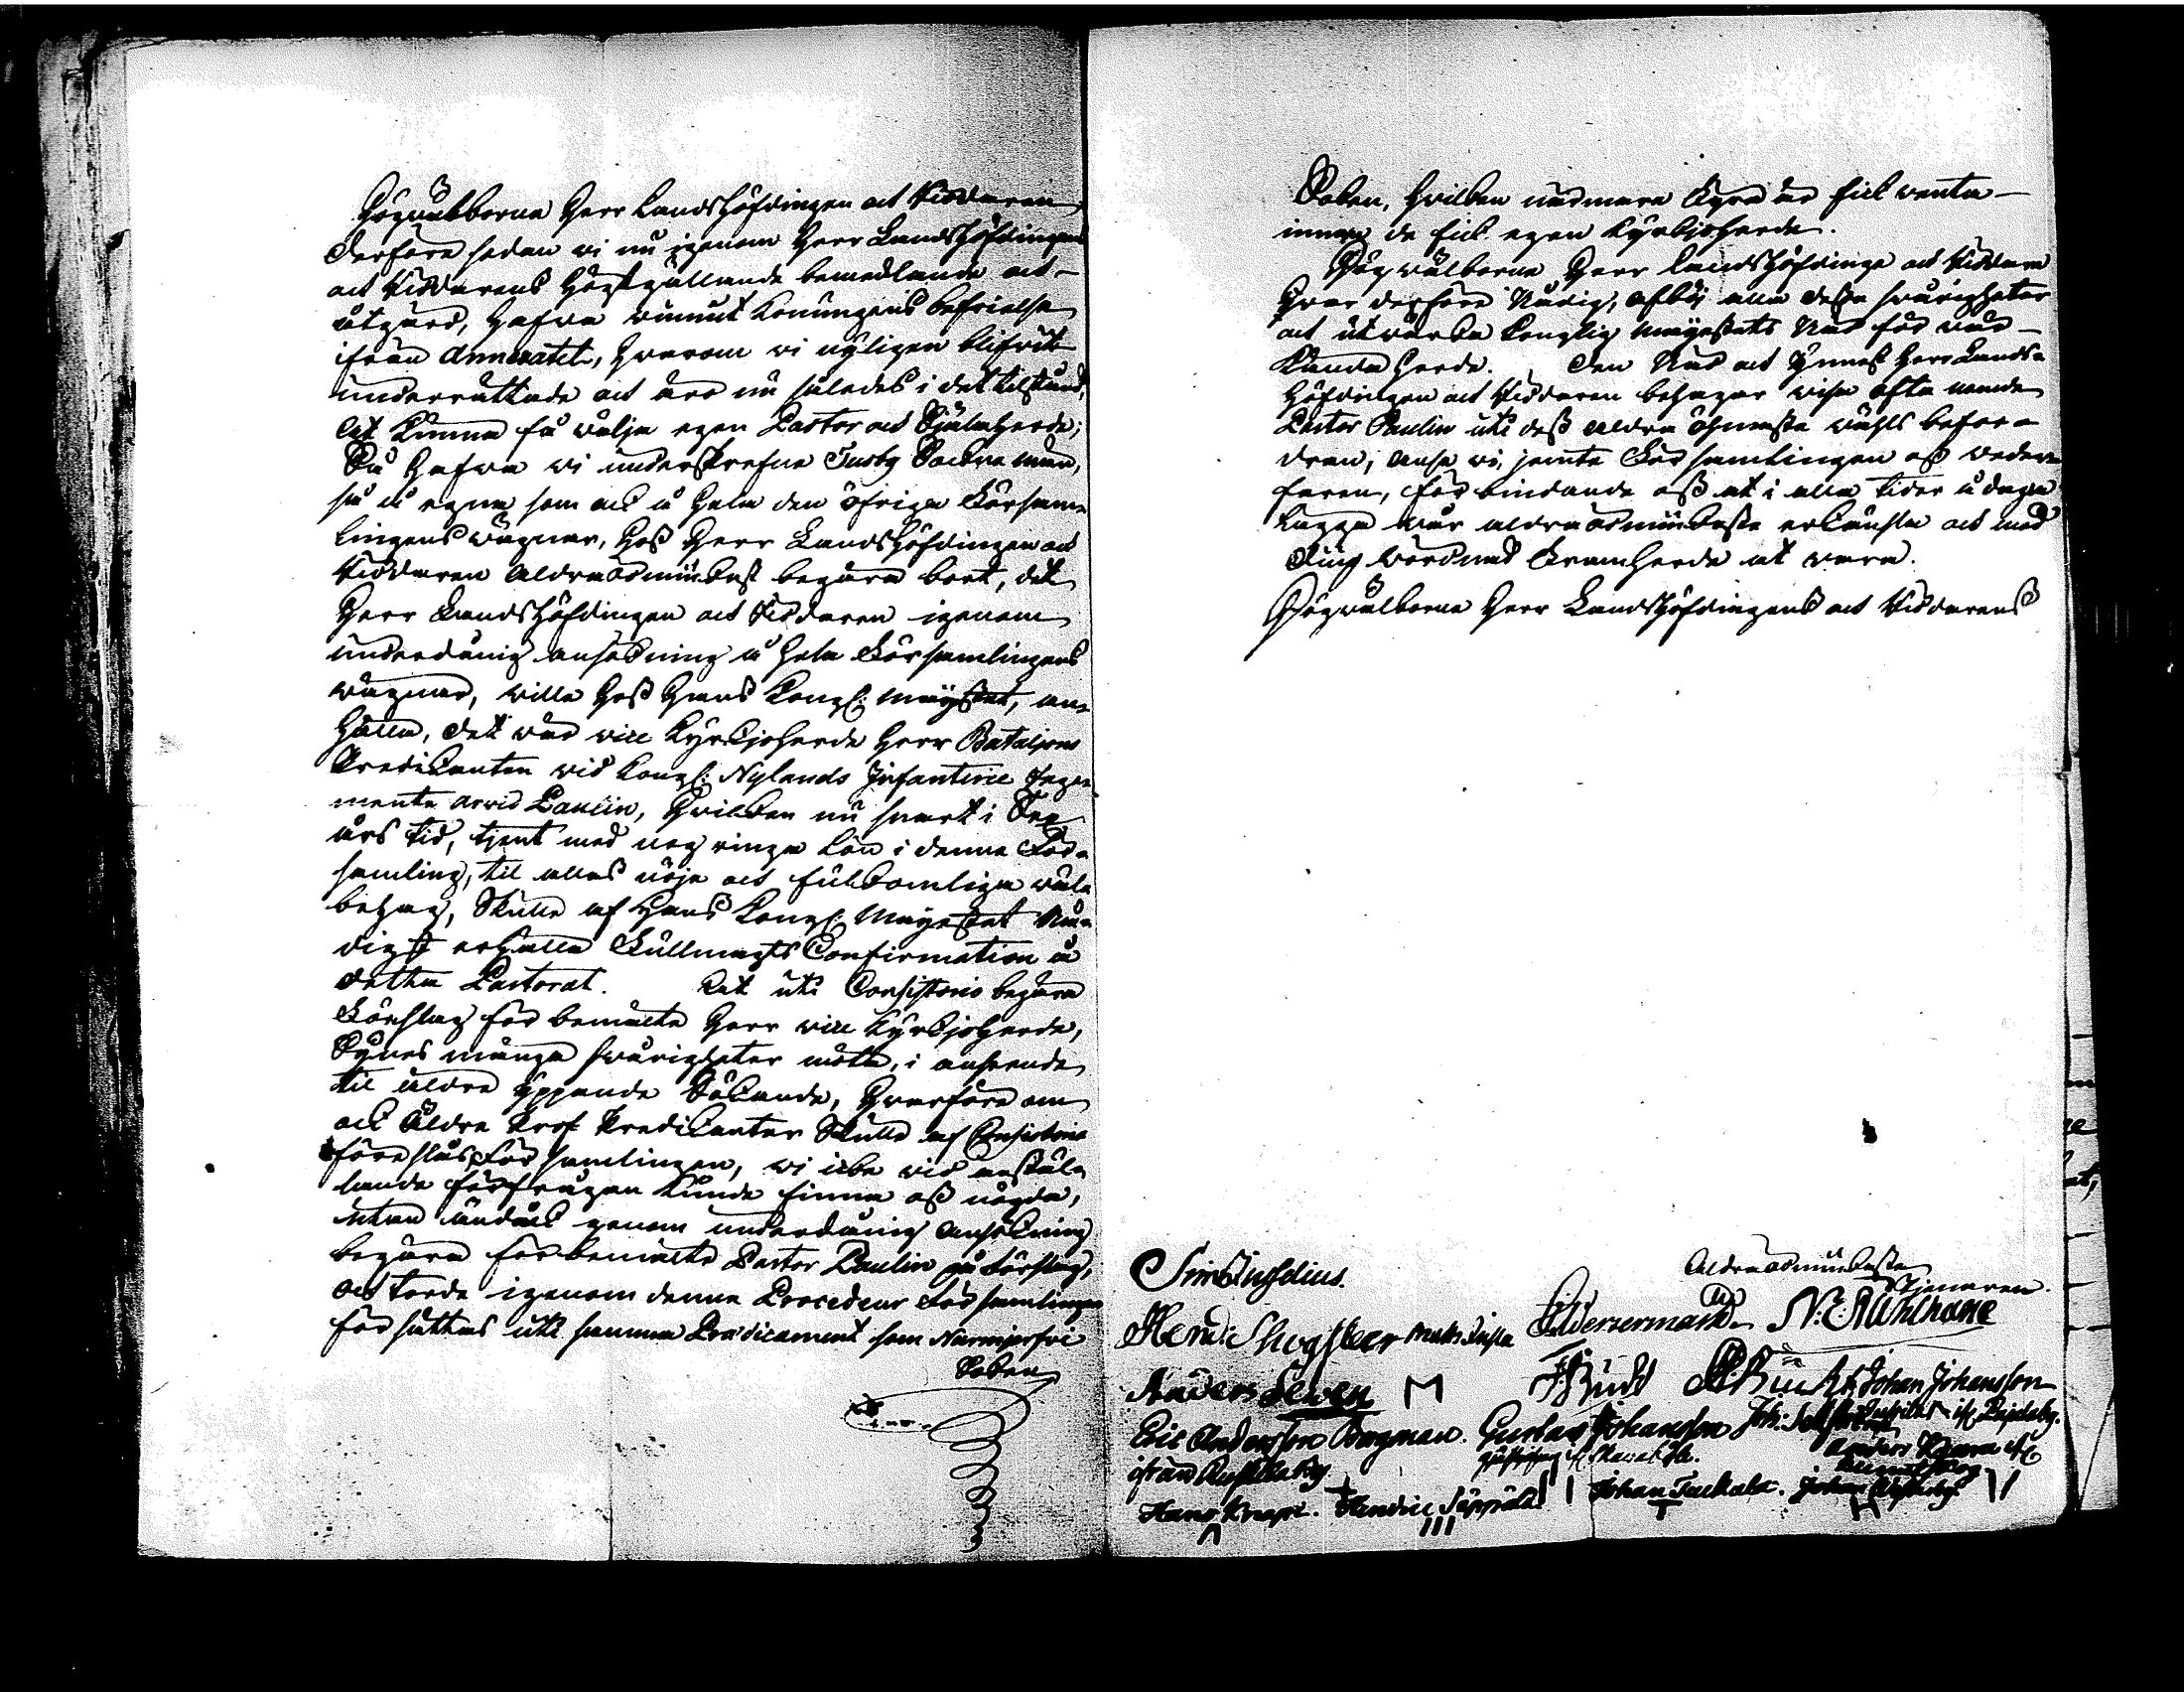 Högwälborne Herr Landshöfdingen och Riddaren
derföre sedan wi nu igenom Herr Landshöfdingens
och Riddarens högstgällande bemedlande och
åtgärd, hafwa wunnit Konungens befrielse
ifrån Annexatet, hwarom wi nyligen blifwit
underrättade och äro nu således i det tilstånd,
at kunna få wälja egen Pastor och Själaherde;
Så hafwe wi underskrefne Tusby Sockne män,
så å egne som ock å hela den öfriga Försam-
lingens wägnar, hos Herr Landshöfdingen och
Riddaren aldraödmiukast begära bort, det
Herr Landshöfdingen och Riddaren igenom
underdånig ansökning å hela Församlingens
wägnar, wille hos Hans Kongl: Mayestet, an-
hålla, det wår vice Kyrkjoherde Herr Bataljons
Predikanten wid Kongl: Nylands Infanterie Rege-
mente Arvid Paulin, hwilken nu snart i Sex
års tid, tjent med nog ringa lön i denna För-
samling, til allas nöje och fulkomliga wäl-
behag, skulle af Hans Kongl. Mayestet Nå-
digst erhålla Fullmagts Confirmation å
detta Pastorat. At uti Consistorio begära
Förslag för bemälte Herr vice Kyrkjoherde,
Synes många swårigheter möta, i anseende
til äldre Sökande, hwarföre om
ock äldre Prof Predikanter skulle af Consistorio
föreslås Församlingen, wi icke wid anstäl-
lande förfrågan kunde finna oss nögda,
utan ändock genom underdånig ansökning
begära förbemälte Pastor Paulin på Förslag,
och torde igenom denna Procedeur Församlingen
försättas uti samma Prædicament som Nurmijerfvi
Soken

Soken, hwilken närmare fyra år fick wenta
innan de fick egen Kyrkjoherde.
Högwälborne Herr Landshöfdinge och Riddare
Hwar derföre Nådig, afböj alla dessa swårigheter
och utwärka Konglig Mayestets Nåd för wår
Kända herde. Den Nåd och Ynnest Herr Lands-
höfdingen och Riddaren behagar wisa ofta nämde
Pastor Paulin uti dess aldra ödmjukaste wähls befor-
dran, anse wi, jemte Församlingen oss weder-
faren, förbindande oss at i alla tider å daga
lägga wår aldraödmiukaste erkänsla och med
diup wördnad framhärda at wara.
Högwälborne Herr Landshöfdingens och Riddarens

Aldraödmiukaste
Tjenaren.
Hend:
Anders Lewen M
Eric Andersson Bergman. Gustav Johansson Johan Johansson
ifrån
Hans Knape. Hendric Seppälä Johan Tackala. Johan